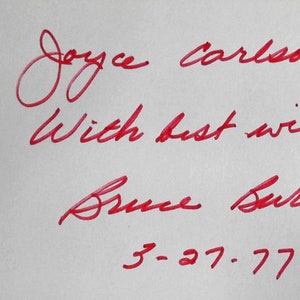 Joyce Carlso
With best wi
Bruce Bu
3-27-77